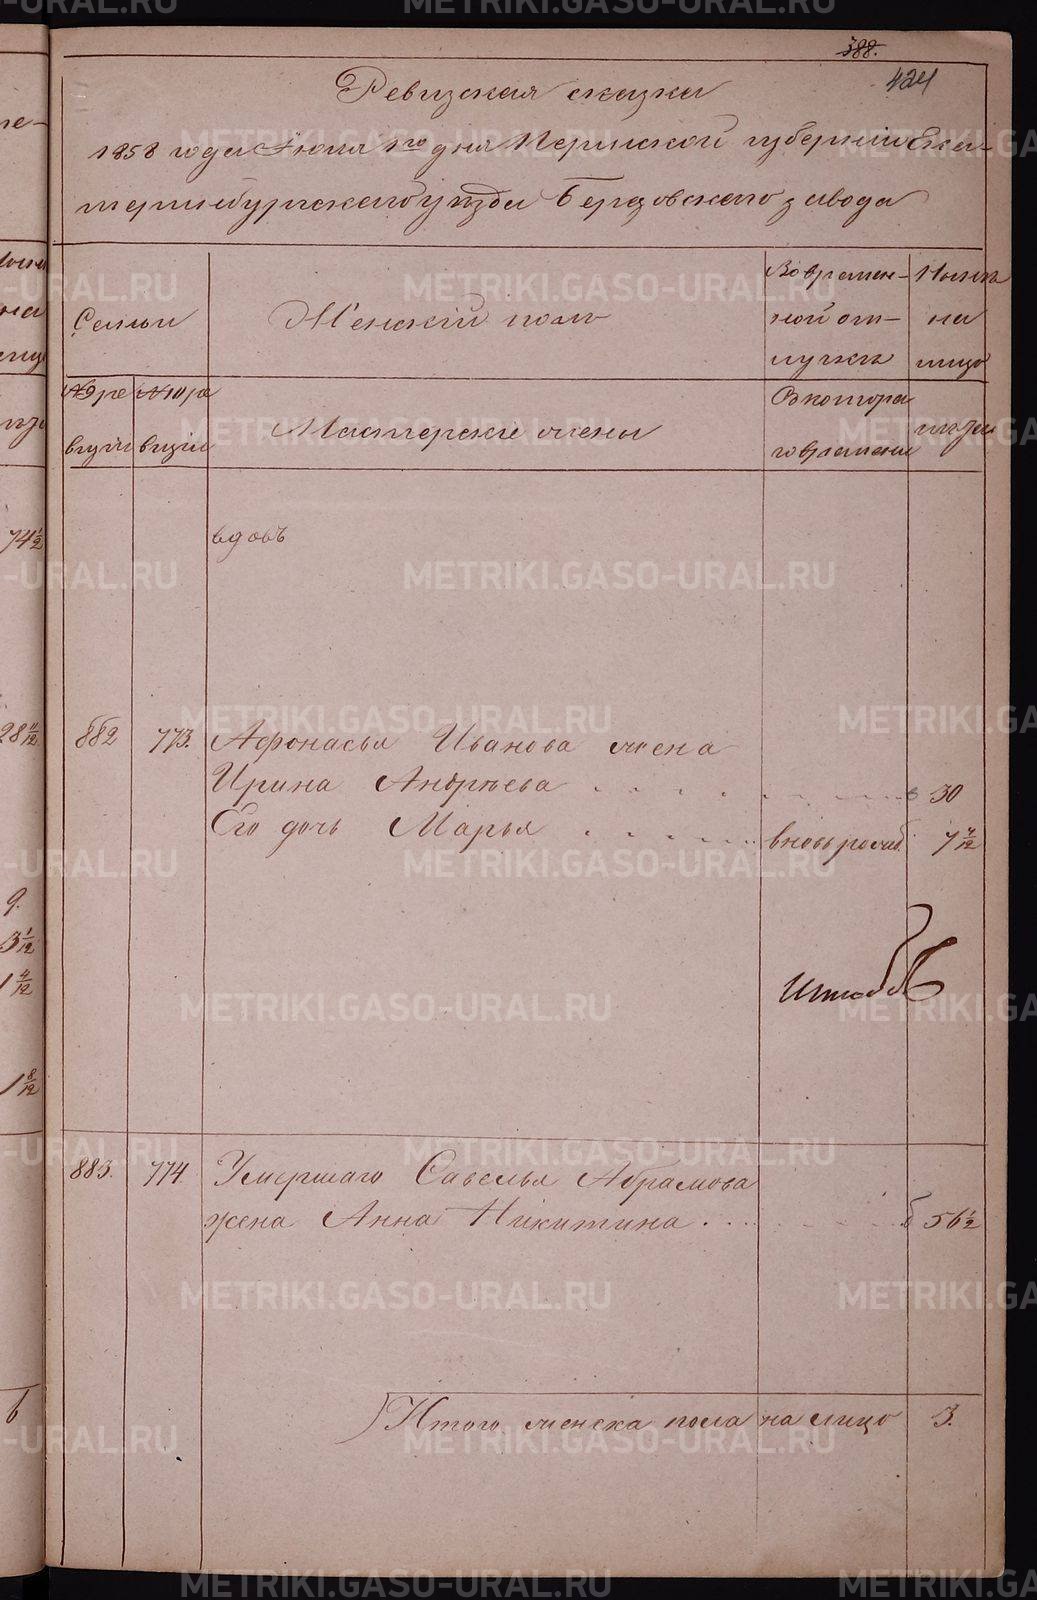 388.
424
Ревизская сказка
1858 года Июля 1го дня Пермской губернии Ека-
теринбургского уезда Березовского завода
Семьи
Женский пол
Во времен-
ной от-
лучке
Ныне
на
лицо
№ 9 ре
визии
№ 10 ре
визии
Мастерские жены
В котора
го времени
лета
вдовъ
882 773. Афонасья Иванова жена
Ирина Андреева 30
Его дочь Марья вновь рожд. 7 7/12
883. 774. Умершаго Савелья Абрамова
жена Анна Никитина 56 1/2
Итого женска пола на лицо 3.
74 1/2
28 11/12
9.
3 1/12
1 4/12
1 8/12
6
METRIKI.GASO-URAL.RU